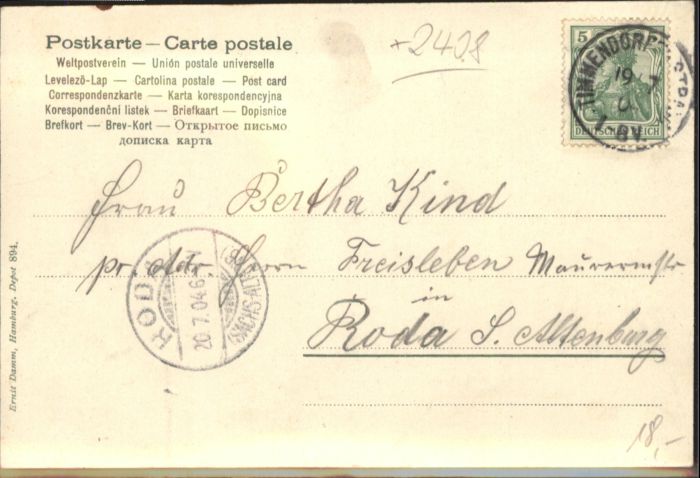 Postkarte — Carte postale
Weltpostverein — Unión postale universelle
Levelező-Lap — Cartolina postale — Post card
Correspondenzkarte — Karta korespondencyjna
Korespondenční listek — Briefkaart — Dopisnice
Brefkort — Brev-Kort — Открытое письмо
дописка карта
*2408
5
DEUTSCHES REICH
TIMMENDORF OSTD
19 7
Frau Bertha Kind
pr. Adr. Herrn Freisleben Maurermstr
in
Roda S. Altenburg
RODA
20.7.04.6
Ernst Damm, Hamburg. Depot 894.
18,-